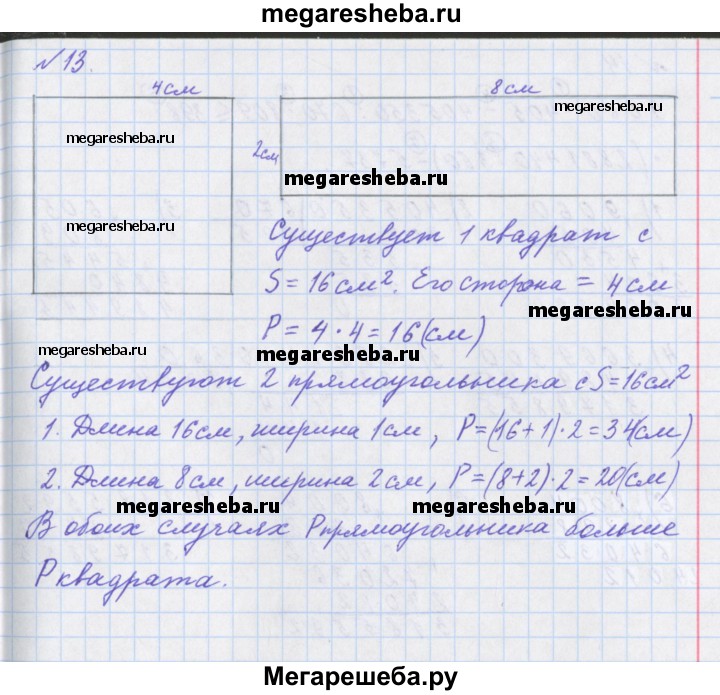 megaresheba.ru
№13.
4см
8см
megaresheba.ru
megaresheba.ru
2см
megaresheba.ru
megaresheba.ru
Существует 1 квадрат с
S = 16 см². Его сторона = 4 см
megaresheba.ru
P = 4 · 4 = 16 (см)
megaresheba.ru
megaresheba.ru
Существуют 2 прямоугольника с S = 16 см²
1. Длина 16 см, ширина 1 см, P = (16 + 1) · 2 = 34 (см)
2. Длина 8 см, ширина 2 см, P = (8 + 2) · 2 = 20 (см)
megaresheba.ru
megaresheba.ru
В обоих случаях P прямоугольника больше
P квадрата.
Мегарешеба.ру